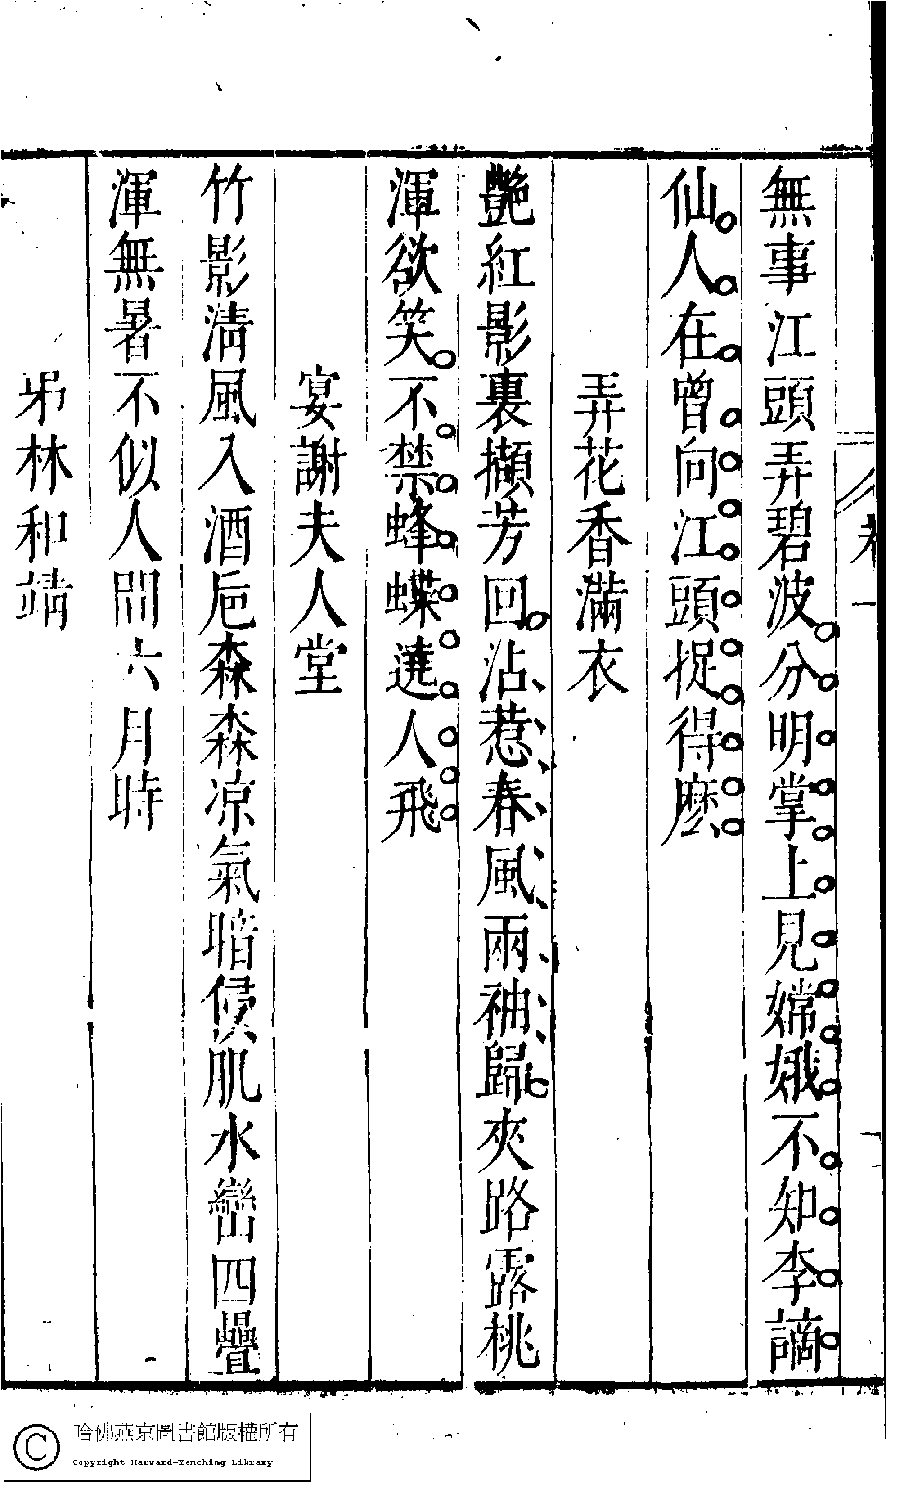 無事江頭弄碧波分明掌上見嫦娥不知李謫
仙人在曾向江頭捉得麽
弄花香滿衣
艷紅影裏擷芳回沾惹春風兩袖歸夾路露桃
渾欲笑不禁蜂蝶遶人飛
宴謝夫人堂
竹影淸風入酒巵森森凉氣暗侵肌水巒四疊
渾無暑不似人間六月時
弔林和靖
卷一
哈佛燕京圖書館版權所有
Copyright Harvard-Yenching Library